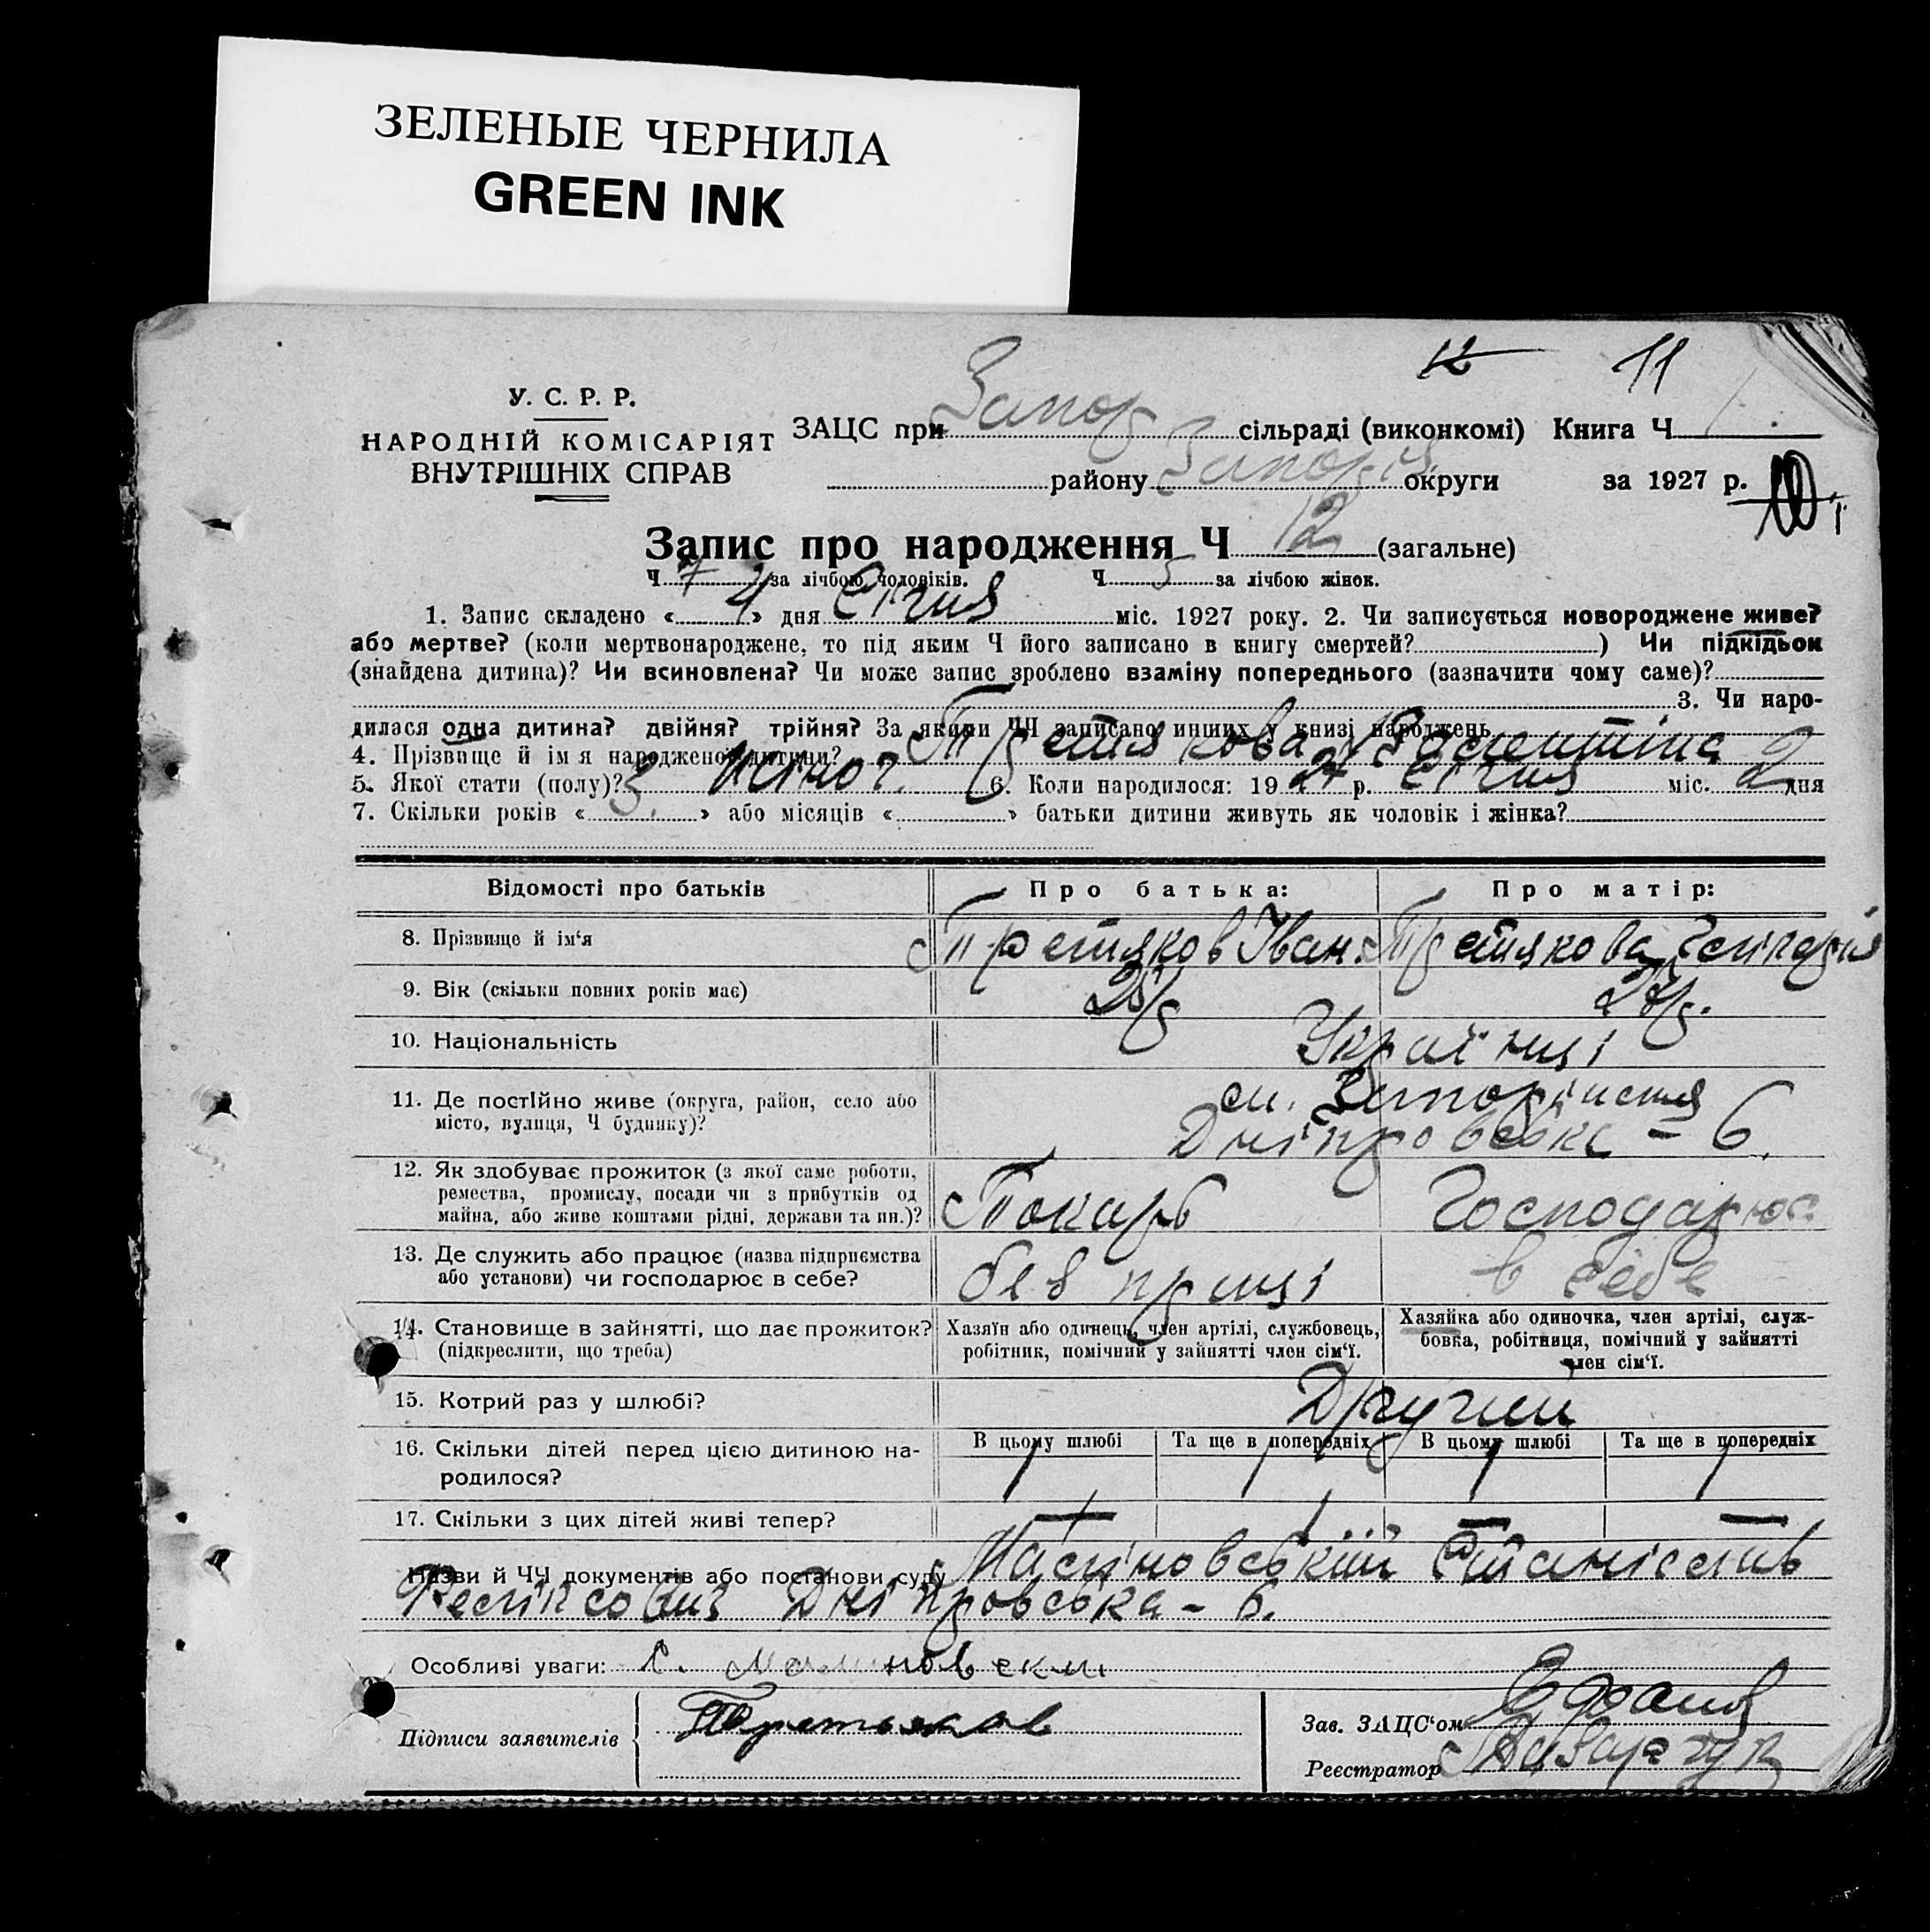 ЗЕЛЕНЫЕ ЧЕРНИЛА
GREEN INK
12 11
У. С. Р. Р.
НАРОДНІЙ КОМІСАРІЯТ
ВНУТРІШНІХ СПРАВ
ЗАЦС при Запор сільраді (виконкомі) Книга Ч 1
району Запоріз округи за 1927 р.
Запис про народження Ч 12 (загальне)
Ч 7 за лічбою чоловіків. Ч 5 за лічбою жінок.
1. Запис складено « 4 » дня Січня міс. 1927 року. 2. Чи записується новороджене живе?
або мертве? (коли мертвонароджене, то під яким Ч його записано в книгу смертей? ) Чи підкідьок
(знайдена дитина)? Чи всиновлена? Чи може запис зроблено взаміну попереднього (зазначити чому саме)?
3. Чи наро-
дилася одна дитина? двійня? трійня? За якими ЧЧ записано инших у книзі народжень
4. Прізвище й ім я народженої дитини? Третякова Валентіна
5. Якої стати (полу)? жіноч. 6. Коли народилося: 19 27 р. Січня міс. 2 дня
7. Скільки років « 3. » або місяців « » батьки дитини живуть як чоловік і жінка?
Відомості про батьків Про батька: Про матір:
8. Прізвище й ім‘я Третяков Іван Третякова
9. Вік (скільки повних років має) 28р 27р.
10. Національність Українці
11. Де постійно живе (округа, район, село або
місто, вулиця, Ч будинку)? м. Запоріжжя
Дніпровська - 6.
12. Як здобуває прожиток (з якої саме роботи,
ремества, промислу, посади чи з прибутків од
майна, або живе коштами рідні, держави та ин.)? Токарь Господарює
13. Де служить або працює (назва підприємства
або установи) чи господарює в себе? без праці в себе
14. Становище в зайнятті, що дає прожиток?
(підкреслити, що треба)
Хазяїн або одинець, член артілі, службовець,
робітник, помічний у зайнятті член сім‘ї.
Хазяйка або одиночка, член артілі, служ-
бовка, робітниця, помічний у зайнятті
член сім‘ї.
15. Котрий раз у шлюбі? Другий
16. Скільки дітей перед цією дитиною на-
родилося?
В цьому шлюбі Та ще в попередніх В цьому шлюбі Та ще в попередніх
1 1 1 1
17. Скільки з цих дітей живі тепер? — 1 — —
Назви й ЧЧ документів або постанови суду Маліновський Станіслав
Феліксовиз Дніпровська - 6.
Особливі уваги: С. Малиновски
Підписи заявителів Третьяков
Зав. ЗАЦС‘ом
Реєстратор